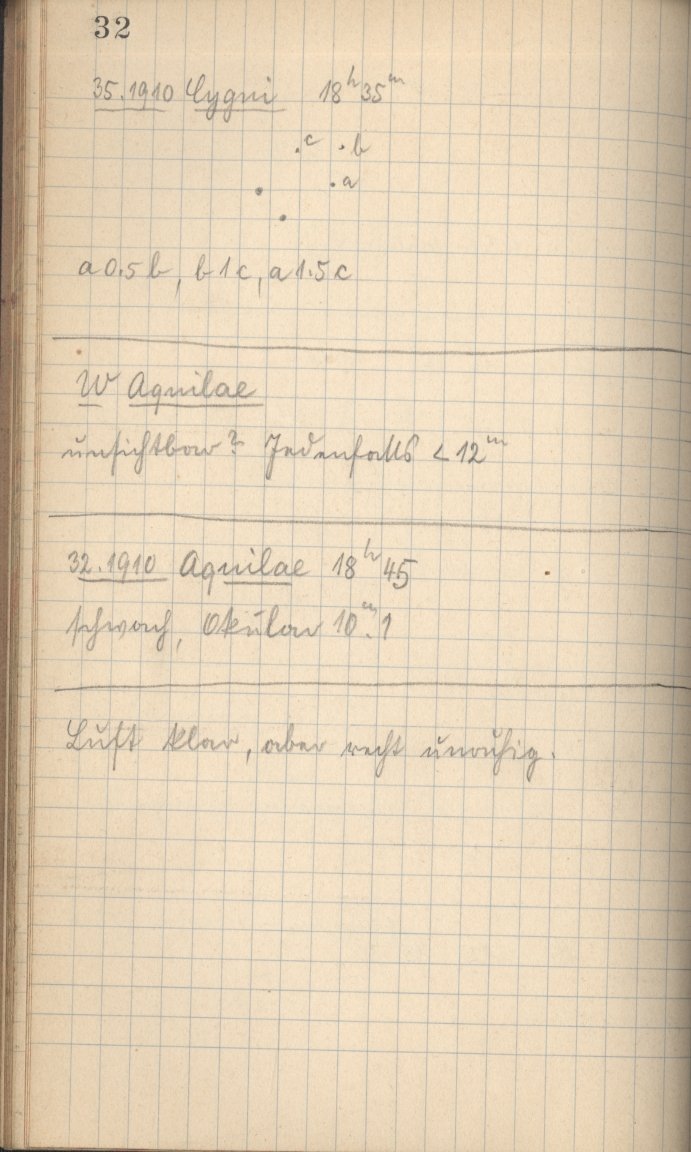 32
35.1910 Cygni 18ʰ35ᵐ
.c .b
.a
a 0.5 b, b 1 c, a 1.5 c
W Aquilae
unsichtbar? Jedenfalls < 12ᵐ
32.1910 Aquilae 18ʰ45
schwach, Okular 10ᵐ.1
Luft klar, aber recht unruhig.